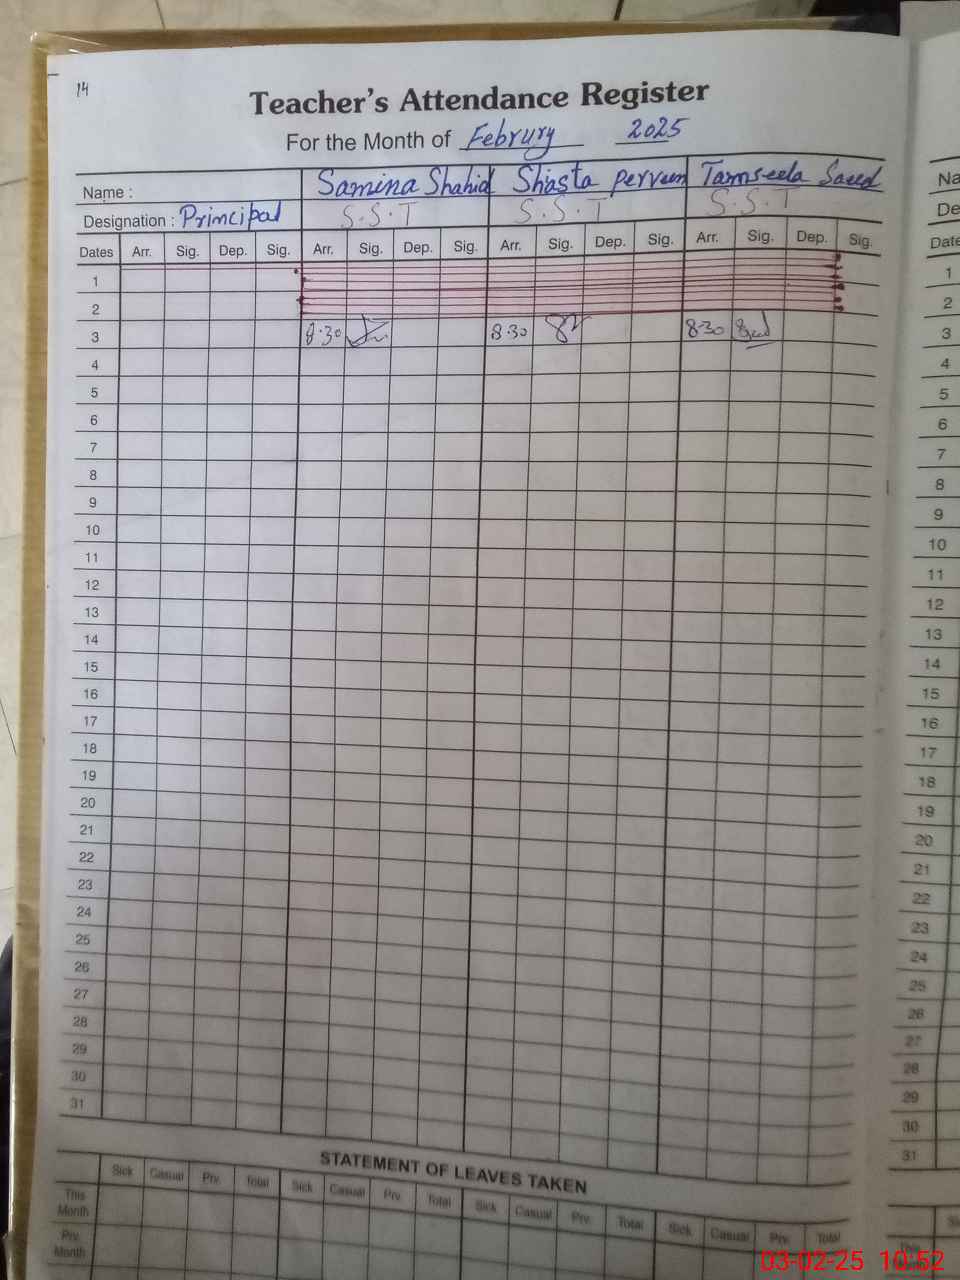 14
Teacher's Attendance Register
For the Month of Februry 2025
Name : Samina Shahid Shiasta perveen Tamseela Saeed
Designation : Principal S.S.T S.S.T S.S.T
Dates Arr. Sig. Dep. Sig. Arr. Sig. Dep. Sig. Arr. Sig. Dep. Sig. Arr. Sig. Dep. Sig.
1
2
3 8.30 8.30 8.30
4
5
6
7
8
9
10
11
12
13
14
15
16
17
18
19
20
21
22
23
24
25
26
27
28
29
30
31
STATEMENT OF LEAVES TAKEN
Sick Casual Prv. Total Sick Casual Prv. Total Sick Casual Prv. Total Sick Casual Prv. Total
This Month
Prv. Month
Na
De
Date
1
2
3
4
5
6
7
8
9
10
11
12
13
14
15
16
17
18
19
20
21
22
23
24
25
26
27
28
29
30
31
03-02-25 10:52